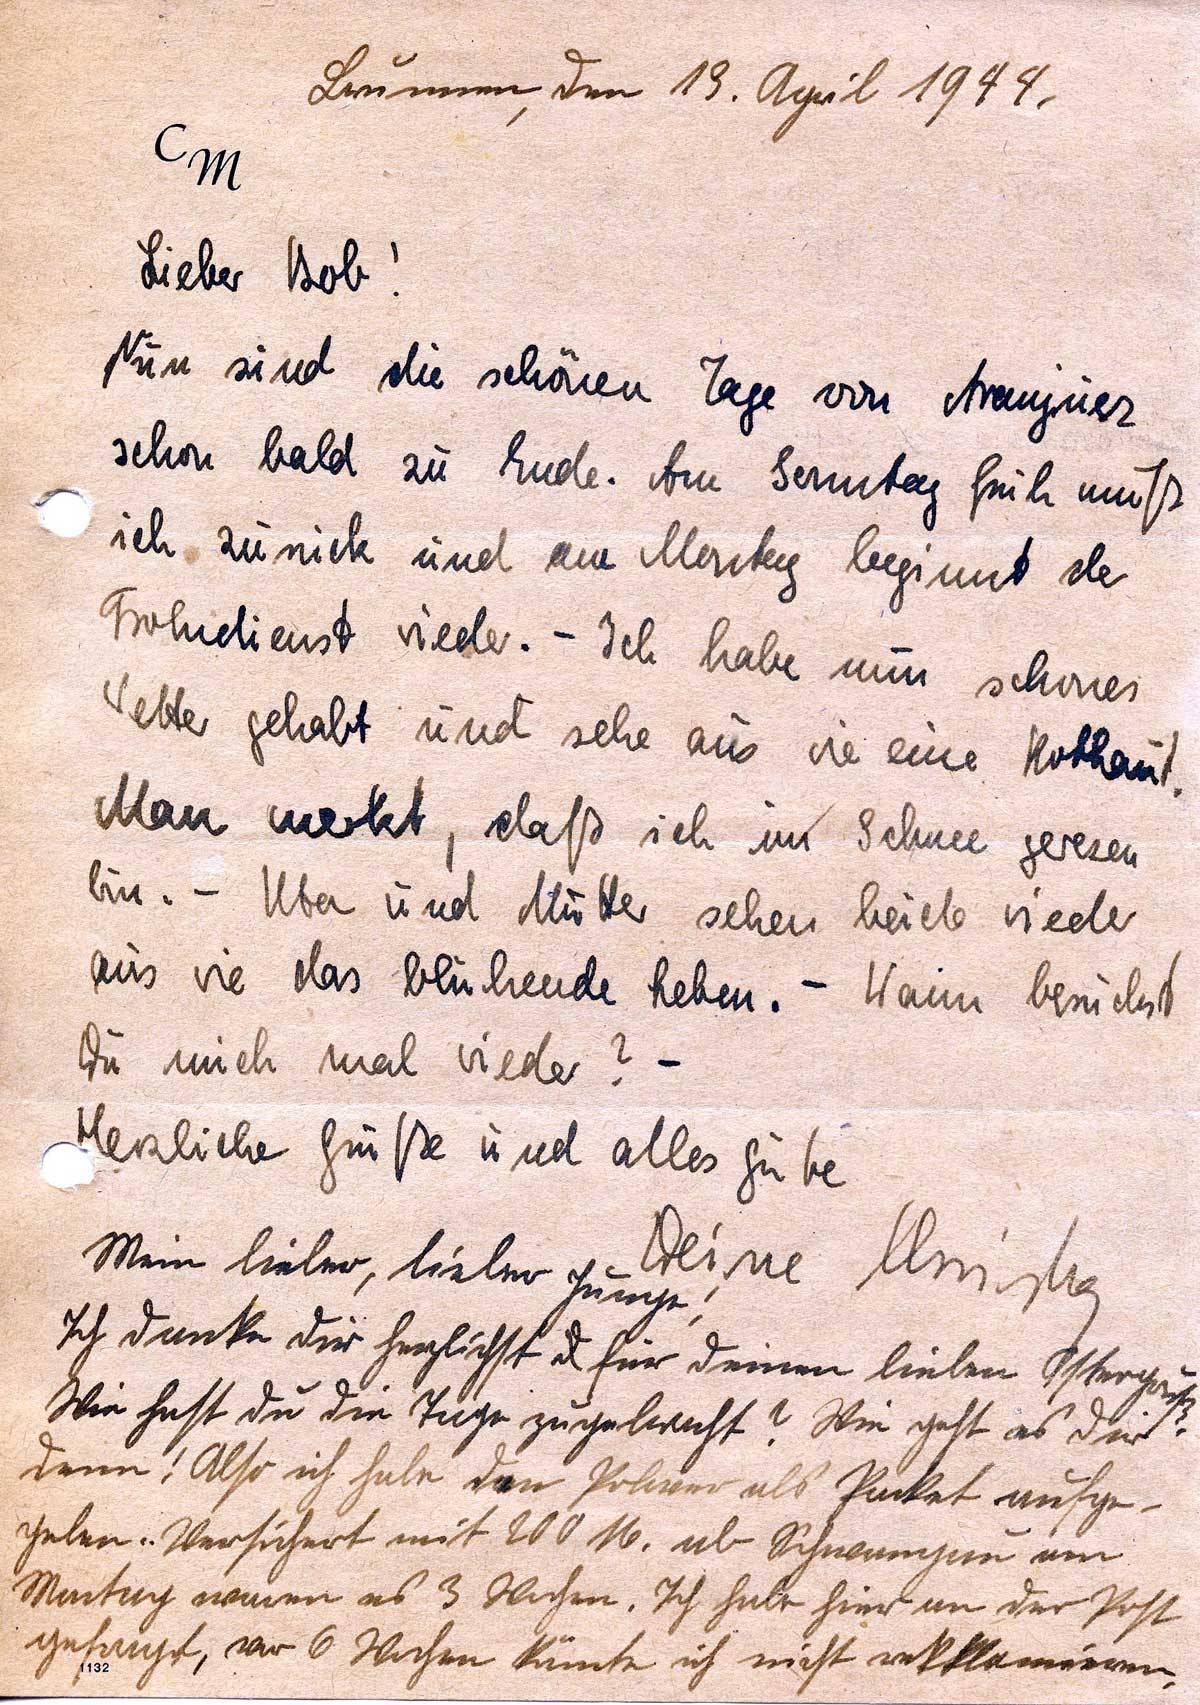 Brunnen, den 13. April 1944.
CM
Lieber Bob!
Nun sind die schönen Tage von Aranjuez
schon bald zu Ende. Am Sonntag früh muß
ich zurück und am Montag beginnt de
Frohndienst wieder. - Ich habe nun schönes
Wetter gehabt und sehe aus wie eine Rothaut.
Man merkt, daß ich im Schnee gewesen
bin. - und Mutter sehen beide wieder
aus wie das blühende Leben. - Wann besuchst
Du mich mal wieder? -
Herzliche Grüße und alles Gute
Deine
Mein lieber, lieber Junge!
Ich danke dir herzlichst für deinen lieben Ostergruß.
Wie hast du die Tage zugebracht? Wie geht es dir
denn! Also ich habe den als Packet aufge-
geben. Versichert mit 200 M. ab Schwangau am
Montag waren es 3 Wochen. Ich habe hier an der Post
gefragt, vor 6 Wochen könnte ich nicht reklamieren.
1132